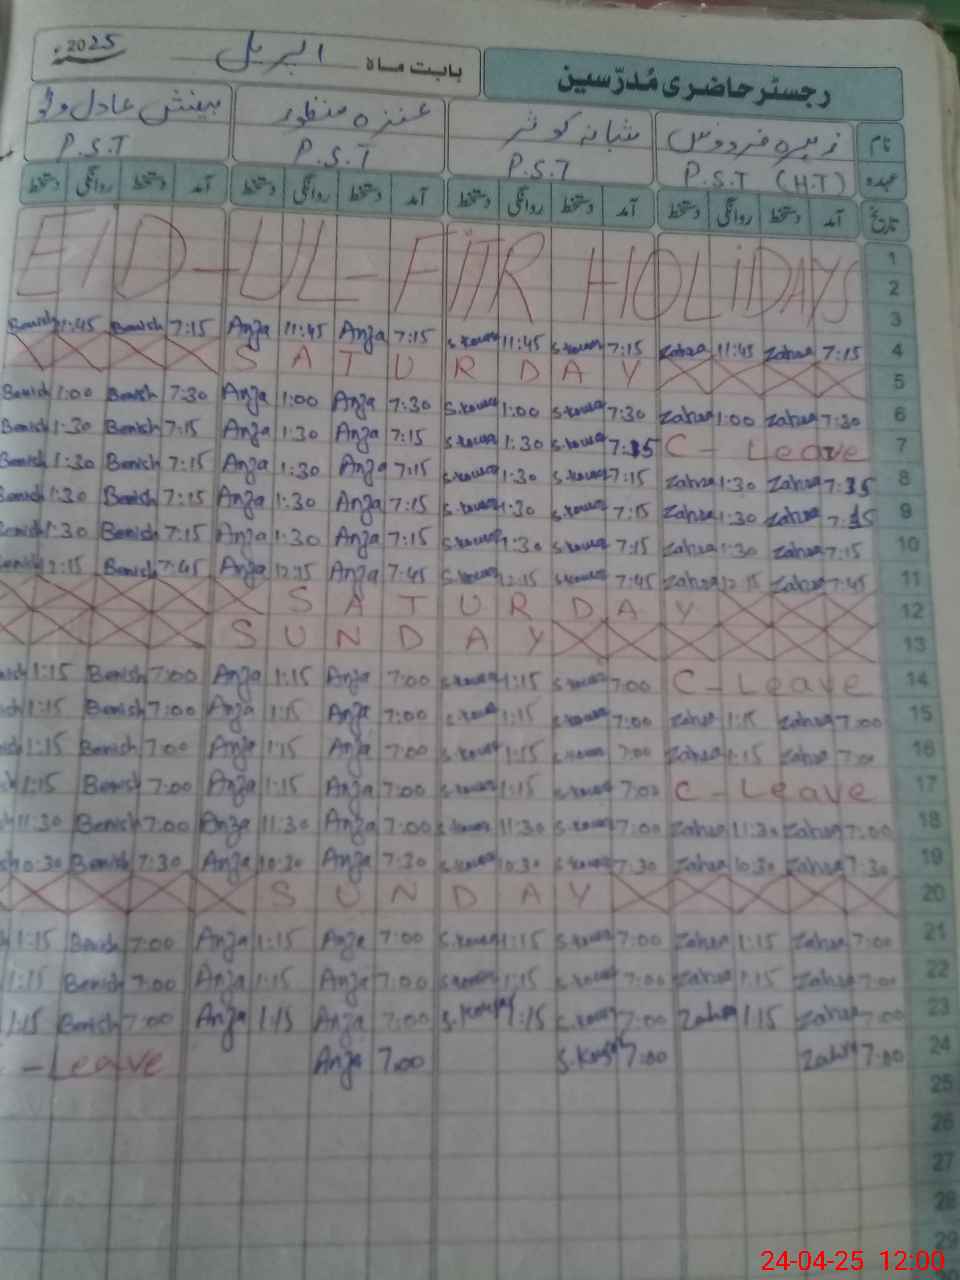 رجسٹر حاضری مُدرّسین
بابت ماہ اپریل 2025ء
نام زہرہ فردوس شبانہ کوثر عنزہ منظور بینش عادل
عہدہ P.S.T (H.T) P.S.T P.S.T P.S.T
تاریخ آمد دستخط روانگی دستخط آمد دستخط روانگی دستخط آمد دستخط روانگی دستخط آمد دستخط روانگی دستخط
1
EID-UL-FITR HOLIDAYS 2
3
Benish 11:45 Benish 7:15 Anza 11:45 Anza 7:15 S.Kousar 11:45 S.Kousar 7:15 Zahra 11:45 Zahra 7:15 4
SATURDAY 5
Benish 1:00 Benish 7:30 Anza 1:00 Anza 7:30 S.Kousar 1:00 S.Kousar 7:30 Zahra 1:00 Zahra 7:30 6
Benish 1:30 Benish 7:15 Anza 1:30 Anza 7:15 S.Kousar 1:30 S.Kousar 7:15 C-Leave 7
Benish 1:30 Benish 7:15 Anza 1:30 Anza 7:15 S.Kousar 1:30 S.Kousar 7:15 Zahra 1:30 Zahra 7:15 8
Benish 1:30 Benish 7:15 Anza 1:30 Anza 7:15 S.Kousar 1:30 S.Kousar 7:15 Zahra 1:30 Zahra 7:15 9
Benish 1:30 Benish 7:15 Anza 1:30 Anza 7:15 S.Kousar 1:30 S.Kousar 7:15 Zahra 1:30 Zahra 7:15 10
Benish 12:15 Benish 7:45 Anza 12:15 Anza 7:45 S.Kousar 12:15 S.Kousar 7:45 Zahra 12:15 Zahra 7:45 11
SATURDAY 12
SUNDAY 13
1:15 Benish 7:00 Anza 1:15 Anza 7:00 S.Kousar 1:15 S.Kousar 7:00 C-Leave 14
1:15 Benish 7:00 Anza 1:15 Anza 7:00 S.Kousar 1:15 S.Kousar 7:00 Zahra 1:15 Zahra 7:00 15
1:15 Benish 7:00 Anza 1:15 Anza 7:00 S.Kousar 1:15 S.Kousar 7:00 Zahra 1:15 Zahra 7:00 16
1:15 Benish 7:00 Anza 1:15 Anza 7:00 S.Kousar 1:15 S.Kousar 7:00 C-Leave 17
11:30 Benish 7:00 Anza 11:30 Anza 7:00 S.Kousar 11:30 S.Kousar 7:00 Zahra 11:30 Zahra 7:00 18
10:30 Benish 7:30 Anza 10:30 Anza 7:30 S.Kousar 10:30 S.Kousar 7:30 Zahra 10:30 Zahra 7:30 19
SUNDAY 20
1:15 Benish 7:00 Anza 1:15 Anza 7:00 S.Kousar 1:15 S.Kousar 7:00 Zahra 1:15 Zahra 7:00 21
1:15 Benish 7:00 Anza 1:15 Anza 7:00 S.Kousar 1:15 S.Kousar 7:00 Zahra 1:15 Zahra 7:00 22
1:15 Benish 7:00 Anza 1:15 Anza 7:00 S.Kousar 1:15 S.Kousar 7:00 Zahra 1:15 Zahra 7:00 23
-Leave Anza 7:00 S.Kousar 7:00 Zahra 7:00 24
25
26
27
28
29
24-04-25 12:00